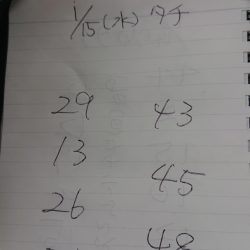 1/15(水) 夕チ
29 43
13
45
26
48